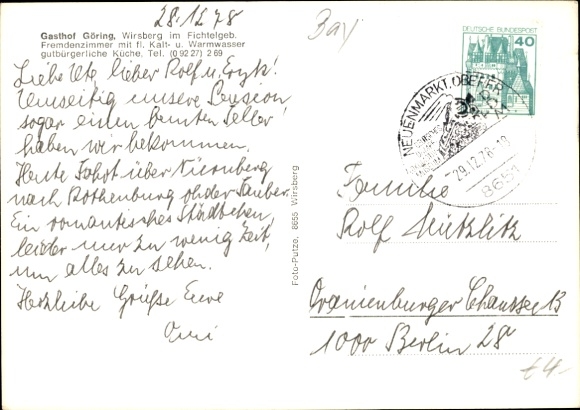 28.12.78
Bay
Gasthof Göring, Wirsberg im Fichtelgeb.
Fremdenzimmer mit fl. Kalt- u. Warmwasser
gutbürgerliche Küche. Tel. (0 92 27) 2 69
Liebe Ute, lieber Rolf u.
Umseitig unsere Pension,
sogar einen bunten Teller
haben wir bekommen.
Heute Fahrt über Nürnberg
nach Rothenburg ob der Tauber.
Ein romantisches Städtchen,
leider nur zu wenig Zeit,
um alles zu sehen.
Herzliche Grüße Eure
Omi
Foto-Putze, 8655 Wirsberg
DEUTSCHE BUNDESPOST
40
NEUENMARKT, OBERFR
29.12.78-18
8651
Familie
Rolf Mützlitz
Oranienburger Chaussee 13
1000 Berlin 28
€4.-